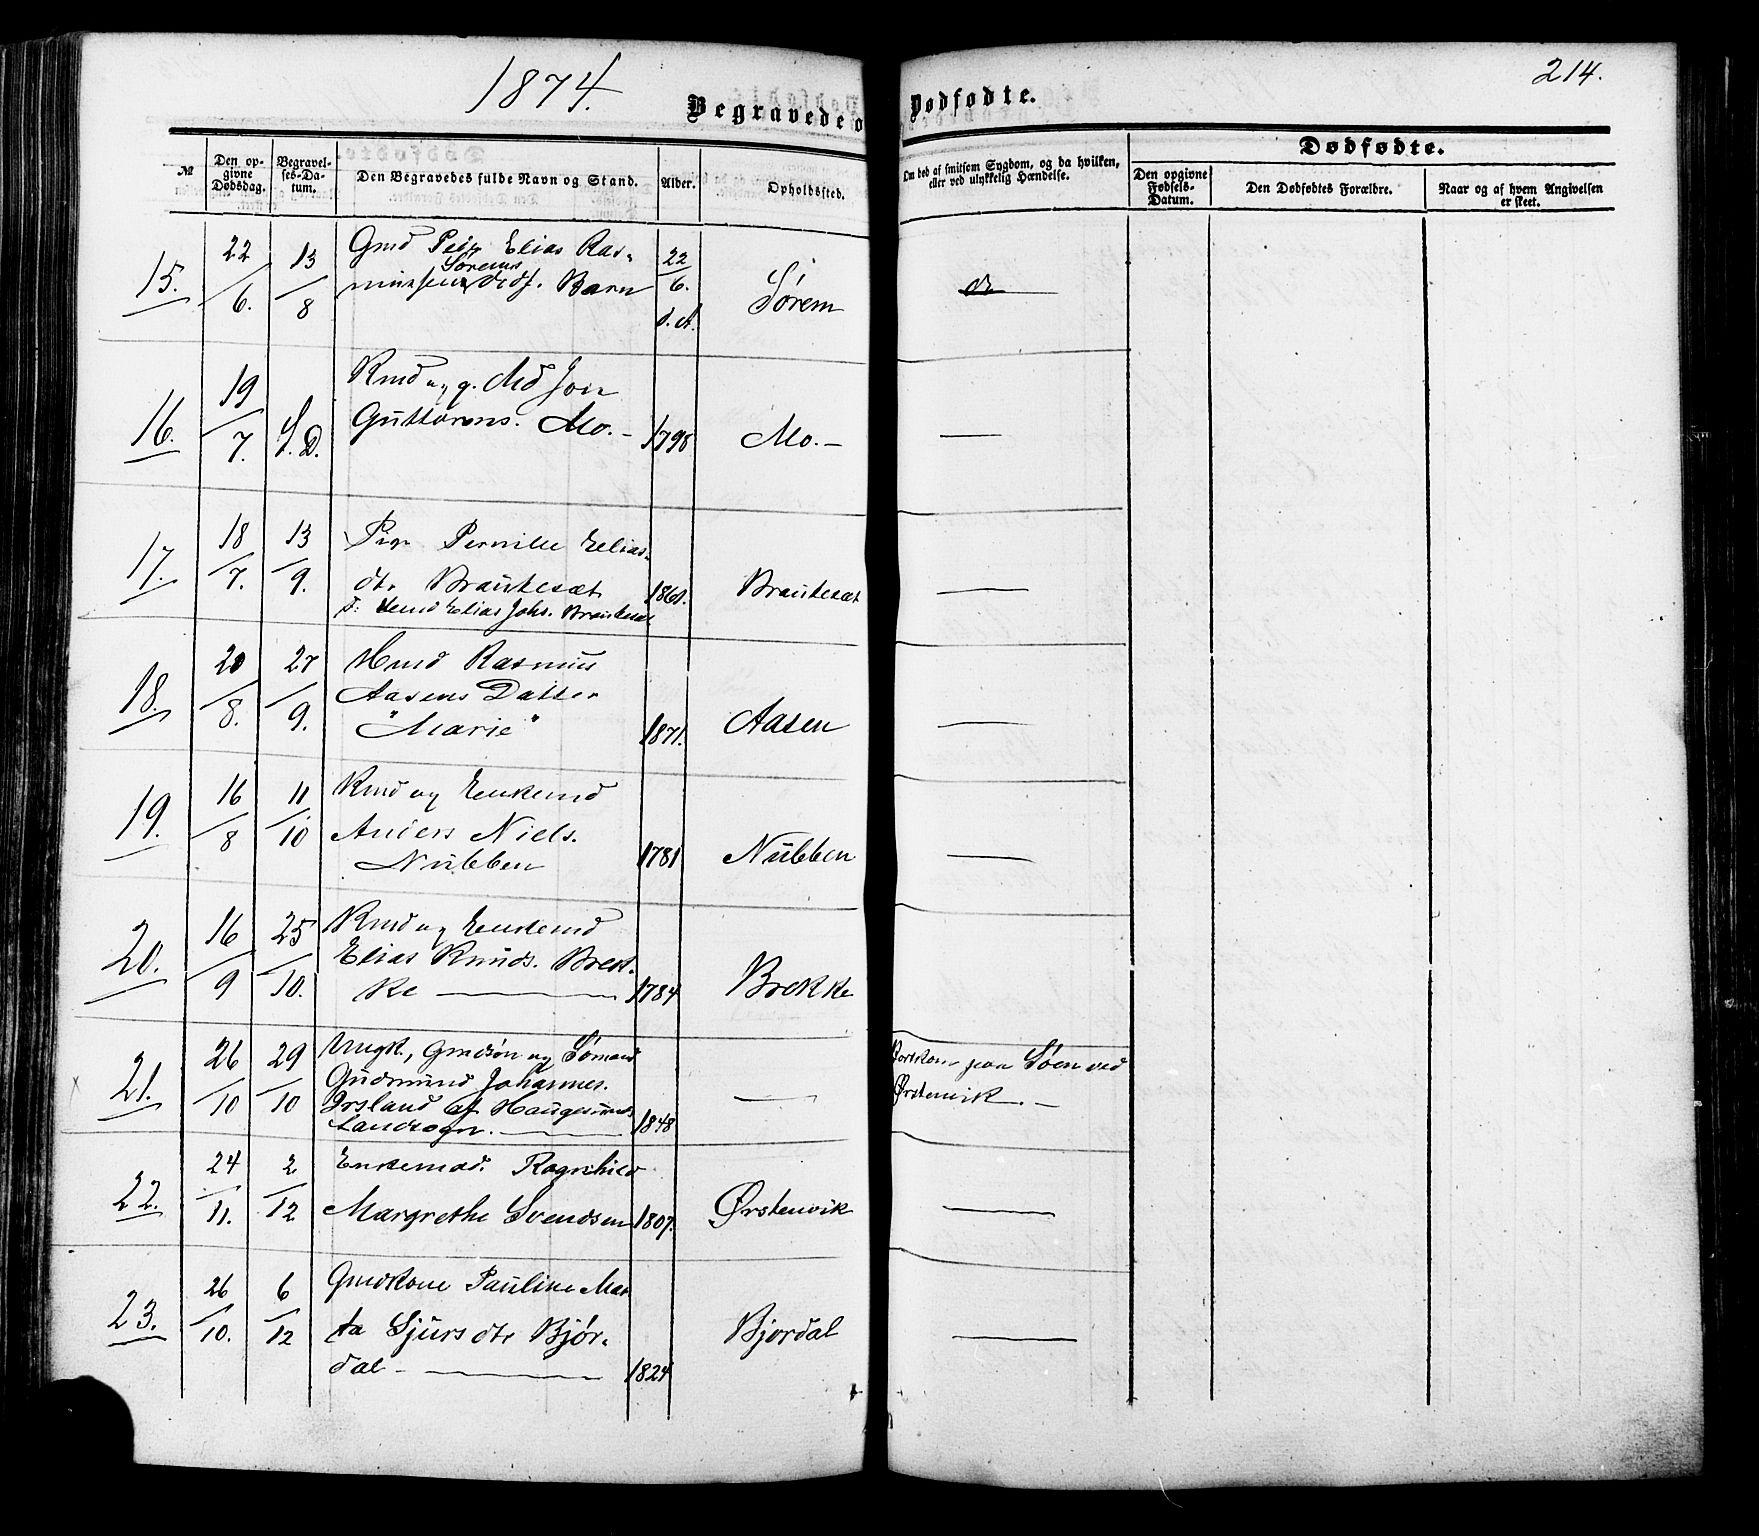 1874.
214.
Begravede o
Dødfødte.
№
Den op-
givne
Dødsdag.
Begravel-
ses-Da-
tum.
Den Begravedes fulde Navn og Stand.
Alder.
Opholdssted.
Om død af smitsom Sygdom, og da hvilken,
eller ved ulykkelig Hændelse.
Dødfødte.
Den opgivne
Fødsels-
Datum.
Den Dødfødtes Forældre.
Naar og af hvem Angivelsen
er skeet.
15. 22/6. 13/8 Gmd Elias Ras-
Sørems
Barn 22/6. d. A. Sørem
16. 19/7. S.D. Kmd og g. Md Jon
Guttorms. Mo. - 1798 Mo. -
17. 18/7. 13/9. Pige Pernille Elias-
dtr Brautesæt 1861. Brautesæt
d: Elias Johs. Brautesæt
18. 20/8. 27/9. Hmd Rasmus
Aasens Datter
"Marie" 1871. Aasen
19. 16/8 11/10 Kmd og Enkemd
Anders Niels.
Nubben 1781 Nubben
20. 16/9 25/10. Kmd og Enkemd
Elias Knuds. Brek-
ke 1784 Brekke
21. 26/10 29/10 Ungk., Gmdsøn og Sømand
Gudmund Johannes.
Irsland af Haugesunds
Landsogn. 1848
Forkom paa Søen ved
Ørstenvik. -
22. 24/11. 2/12 Enkemad. Ragnhild
Margrethe Svendsen 1807. Ørstenvik
23. 26/10. 6/12 Gmdkone Pauline Mar
ta Sjursdtr Bjør-
dal - 1824 Bjordal